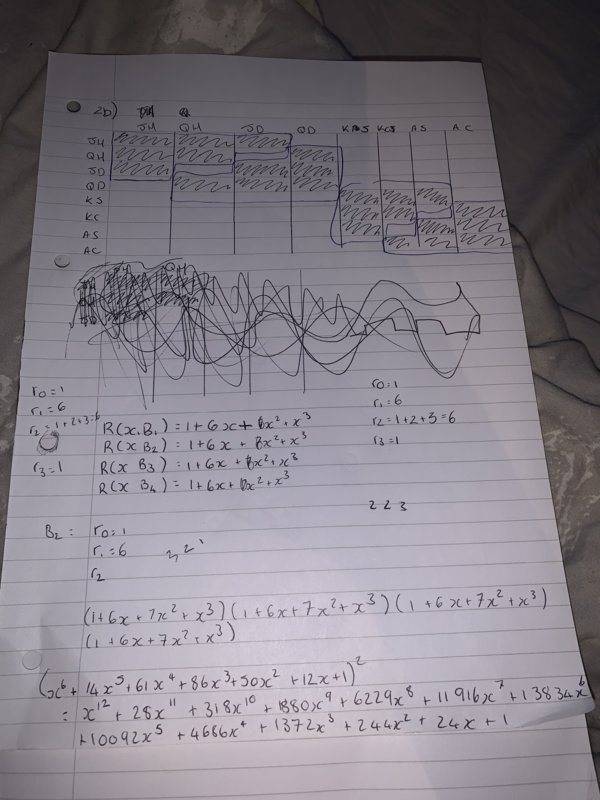 2b)
JH QH JD QD KS KCS AS AC
JH
QH
JD
QD
KS
KC
AS
AC
QH
r0=1
r1=6
r2=1+2+3=6
r3=1
R(x B1)=1+6x+8x²+x³
R(x B2)=1+6x+8x²+x³
R(x B3)=1+6x+8x²+x³
R(x B4)=1+6x+8x²+x³
r0=1
r1=6
r2=1+2+3=6
r3=1
2 2 3
B2= r0=1
r1=6
r2
(1+6x+7x²+x³)(1+6x+7x²+x³)(1+6x+7x²+x³)
(1+6x+7x²+x³)
(x⁶+14x⁵+61x⁴+86x³+50x²+12x+1)²
= x¹²+28x¹¹+318x¹⁰+1880x⁹+6229x⁸+11916x⁷+13834x⁶
+10092x⁵+4686x⁴+1372x³+244x²+24x+1